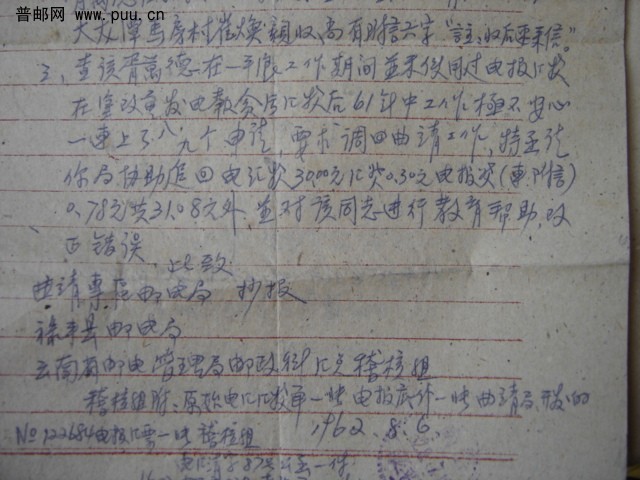 普邮网 www.puu.cn
大友潭马房村崔焕 收, 尚有附言六字 "註:收后来信"。
三、查该 德在一平浪工作期间並未使用过电报汇款
在 发电 汇款后61年中工作極不安心
一連上了八、九个申请 要求调回曲靖工作, 特函请
你局协助追回电汇款30.00元汇费0.30元电报费(連附言)
0.78元共31.08元外, 並对该同志进行教育帮助, 改
正错误
此致
曲靖專區邮电局 抄报
禄丰县邮电局
云南省邮电管理局邮政科汇兑稽核组
稽核组附: 原始电汇汇款单一张 电报底份一张 曲靖局开发的
No 122684电报汇票一张 稽核组 1962.8.6.
一件